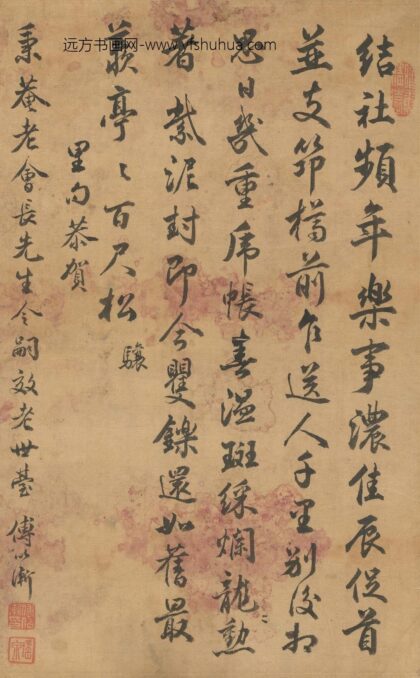 远方书画网-www.yfshuhua.com
結社頻年樂事濃佳辰促首
並支笻樽前乍送人千里別後相
思日幾重虎帳春溫斑綵爛龍〻勳
著紫泥封即今矍鑠還如舊最
羨亭〻百尺松 驤
里句恭賀
秉菴老會長先生令嗣效老世臺 傅以漸